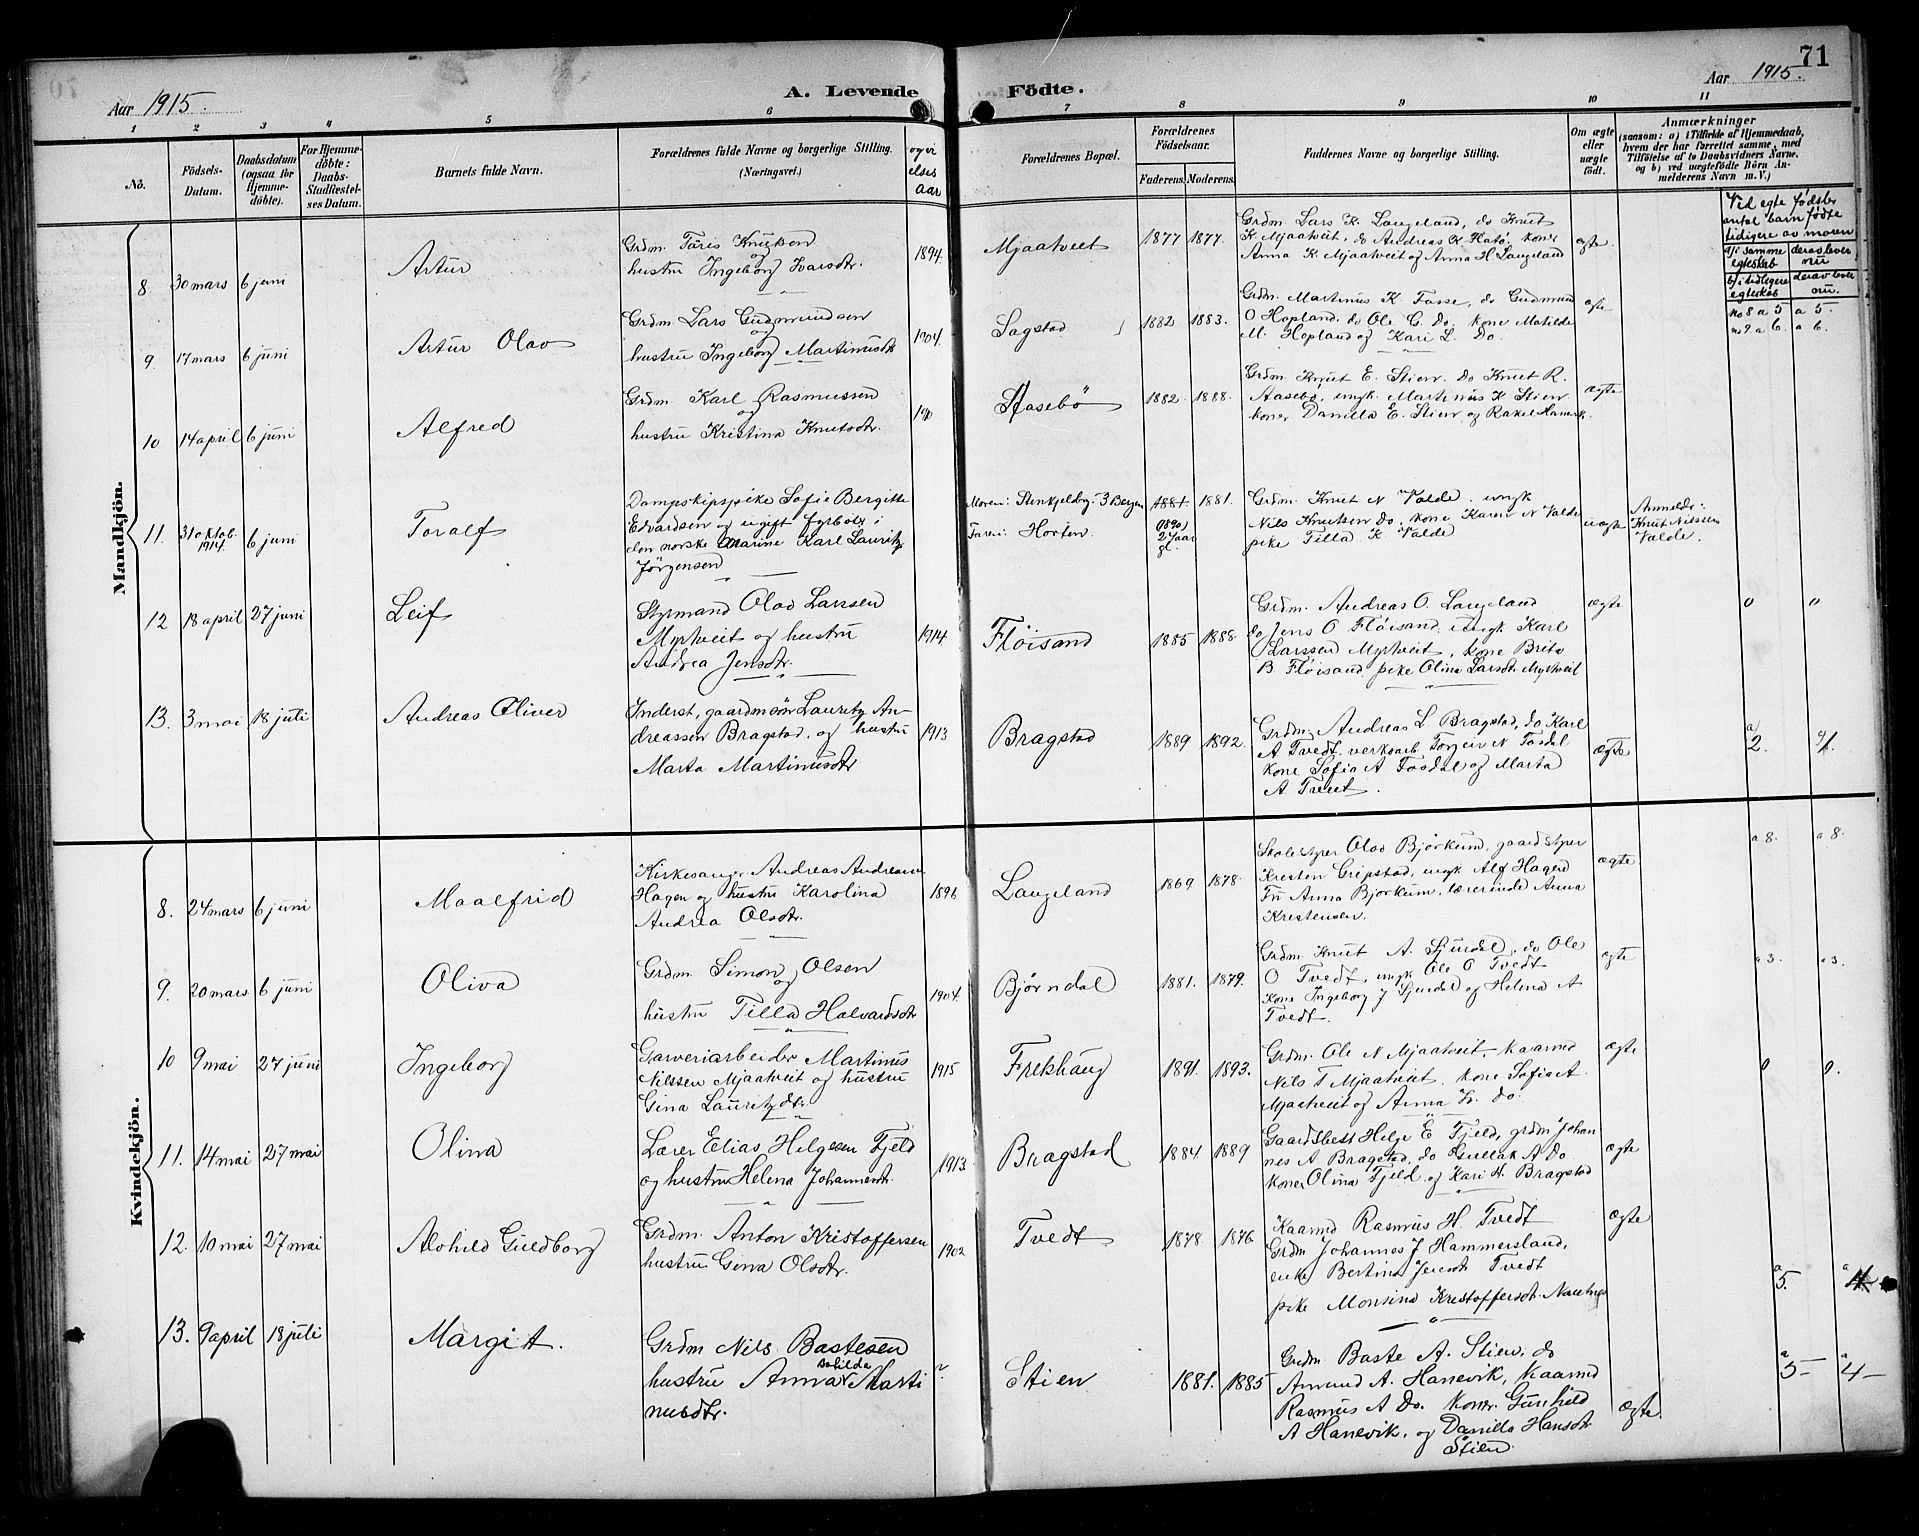 71
Aar 1915.
A. Levende
Födte.
Aar 1915.
1 2 3 4 5 6 7 8 9 10 11
No.
Födsels-
Datum.
Daabsdatum
(ogsaa for
Hjemme-
döbte).
For Hjemme-
döbte:
Daabs-
Stadfæstel-
ses Datum.
Barnets fulde Navn.
Forældrenes fulde Navne og borgerlige Stilling.
(Næringsvei.)
og vi
elses
aar
Forældrenes Bopæl.
Forældrenes
Födselsaar.
Faderens. Moderens.
Faddernes Navne og borgerlige Stilling.
Om ægte
eller
uægte
födt.
Anmærkninger
(saasom: a) i Tilfælde af Hjemmedaab,
hvem der har forrettet samme, med
Tilföielse af to Daabsvidners Navne.
og b) ved uægtefödte Börn An-
melderens Navn m. V.)
Ved egte födsler
antal barn födte
tidligere av moren
a/i samme
egteskab
derav lever
nu
b/i tidligere
egteskab
derav lever
nu.
no 8 a 5 a 5.
no 9. a 6. a 6.
Mandkjön.
8. 30 mars 6 juni
Artur
Grdm. Taris Knutsen
og
hustru Ingeborg Ivarsdr.
1894.
Mjaatveit
1877 1877.
Grdm. Lars K. Langeland, do Knut
K. Mjaatveit, do Andreas K Hatö, koner
Anna K. Mjaatveit og Anna H. Langeland
ægte.
9. 17 mars 6 juni
Artur Olav
Grdm. Lars Gudmundsen
og
hustru Ingeborg Martinusdr
1904.
Sagstad
1882 1883.
Grdm. Martinus K. Fosse, do Gudmun
O Hopland, do Ole G. Do. kone Matilde
M. Hopland og Kari L. Do.
ægte
10 14 april 6 juni
Alfred
Grdm. Karl Rasmussen
og
hustru Kristina Knutsdr.
Aasebö
1882. 1888.
Grdm. Knut E. Stien. do Knut R.
Aasebö, ungk. Martinus K Stien
koner Danilla E. Stien og Rakel
ægte
11. 31 oktob. 6 juni
1914.
Toralf
Dampskipspike Sofie Bergitte
Edvardsen og ugift fyrböter i
den norske Marine Karl Lauritz
Jörgensen
Moren: Stenkjeldbg. 3 Bergen
Faren: Horten
1881. 1881.
(1890)
24 aar
gl.
Grdm. Knut N Valde. ungk
Nils Knutsen Do. kone Karen N Valde
pike Tilla K Valde
uægte
Anmeldr:
Knut Nilssen
Valde.
12 18 april 27 juni
Leif
Styrmand Olav Larssen
Myhtveit og hustru
Andrea Jensdr.
1914.
Flöisand
1885 1888.
Grdm. Andreas O. Langeland
do Jens O Flöisand. ungk Karl
Larssen Myhtveit, kone Brita
B. Flöisand, pike Olina Larsdr. Myhtveit
ægte
0 0
13. 3 mai 18 juli
Andreas Oliver
Inderst, gaardmsön Lauritz An-
dreassen Bragstad, og hustru
Marta Martinusdr
1913
Bragstad
1889 1892.
Grdm. Andreas L. Bragstad, do Karl
A Tvedt. verksarb. Torgeir N Fosdal
kone Sofia A Fosdal og Marta
A Tveit.
ægte
a/ 2. a/ 1.
Kvindekjön.
8. 24 mars 6 juni
Maalfrid
Kirkesanger Andreas Andreassen
Hagen og hustru Karolina
Andrea Olsdr.
1896
Langeland
1869 1878.
Skolestyrer Olav Björkum, gaardstyrer
Kresten Gripstad, ungk Alf Hagen
Fru Anna Björkum, lærerinde Anna
Kristensen.
ægte
a 8. a 8.
9. 20 mars 6 juni
Oliva
Grdm. Simon Olsen
og
hustru Tilla Halvardsdr
1904.
Björndal
1881. 1879.
Grdm. Knut A. Sjurdal, do Ole
O Tvedt, ungk Ole O Tvedt
Kone Ingeborg J Sjurdal og Helena A
Tvedt.
ægte
a 3. a 3.
10 9 mai 27 juni
Ingeborg
Garveriarbeider Martinus
Nilssen Mjaatveit og hustru
Gina Lauritzdr.
1915
Frekhaug
1891. 1893.
Grdm. Ole N Mjaatveit, kaarmd
Nils T Mjaatveit. kone Sofia A
Mjaatveit og Anna K. Do.
ægte
0 0.
11. 14 mai 27 mai
Olina
Lærer Elias Helgesen Fjeld
og hustru Helena Johannesdr.
1913.
Bragstad
1884 1889
Gaardsbest Helge E Fjeld, grdm Johan
nes A Bragstad, do Gullak A Do.
koner Olina Fjeld og Kari H. Bragstad
ægte
12. 10 mai 27 mai
Alvhild Guldborg
Grdm. Anton Kristoffersen
hustru Gina Olsdr.
1902
Tvedt
1878. 1876.
Kaarmd Rasmus H. Tvedt
Grdm Johannes J Hammersland,
enke Bertina Jensdr Tvedt
pike Monsina Kristoffersdr.
ægte
a 5. a 4
13. 9 april 18 juli
Margit.
Grdm Nils Bastesen
hustru Anna Marti
nusdtr.
?
Stien
1881. 1885
Grdm Baste A. Stien, do
Amund A. Hanevik, Kaarmd
Rasmus A Do. koner Gunhild
A Hanevik, og Danilla Hansdr
Stien.
ægte.
a 5— a 4—